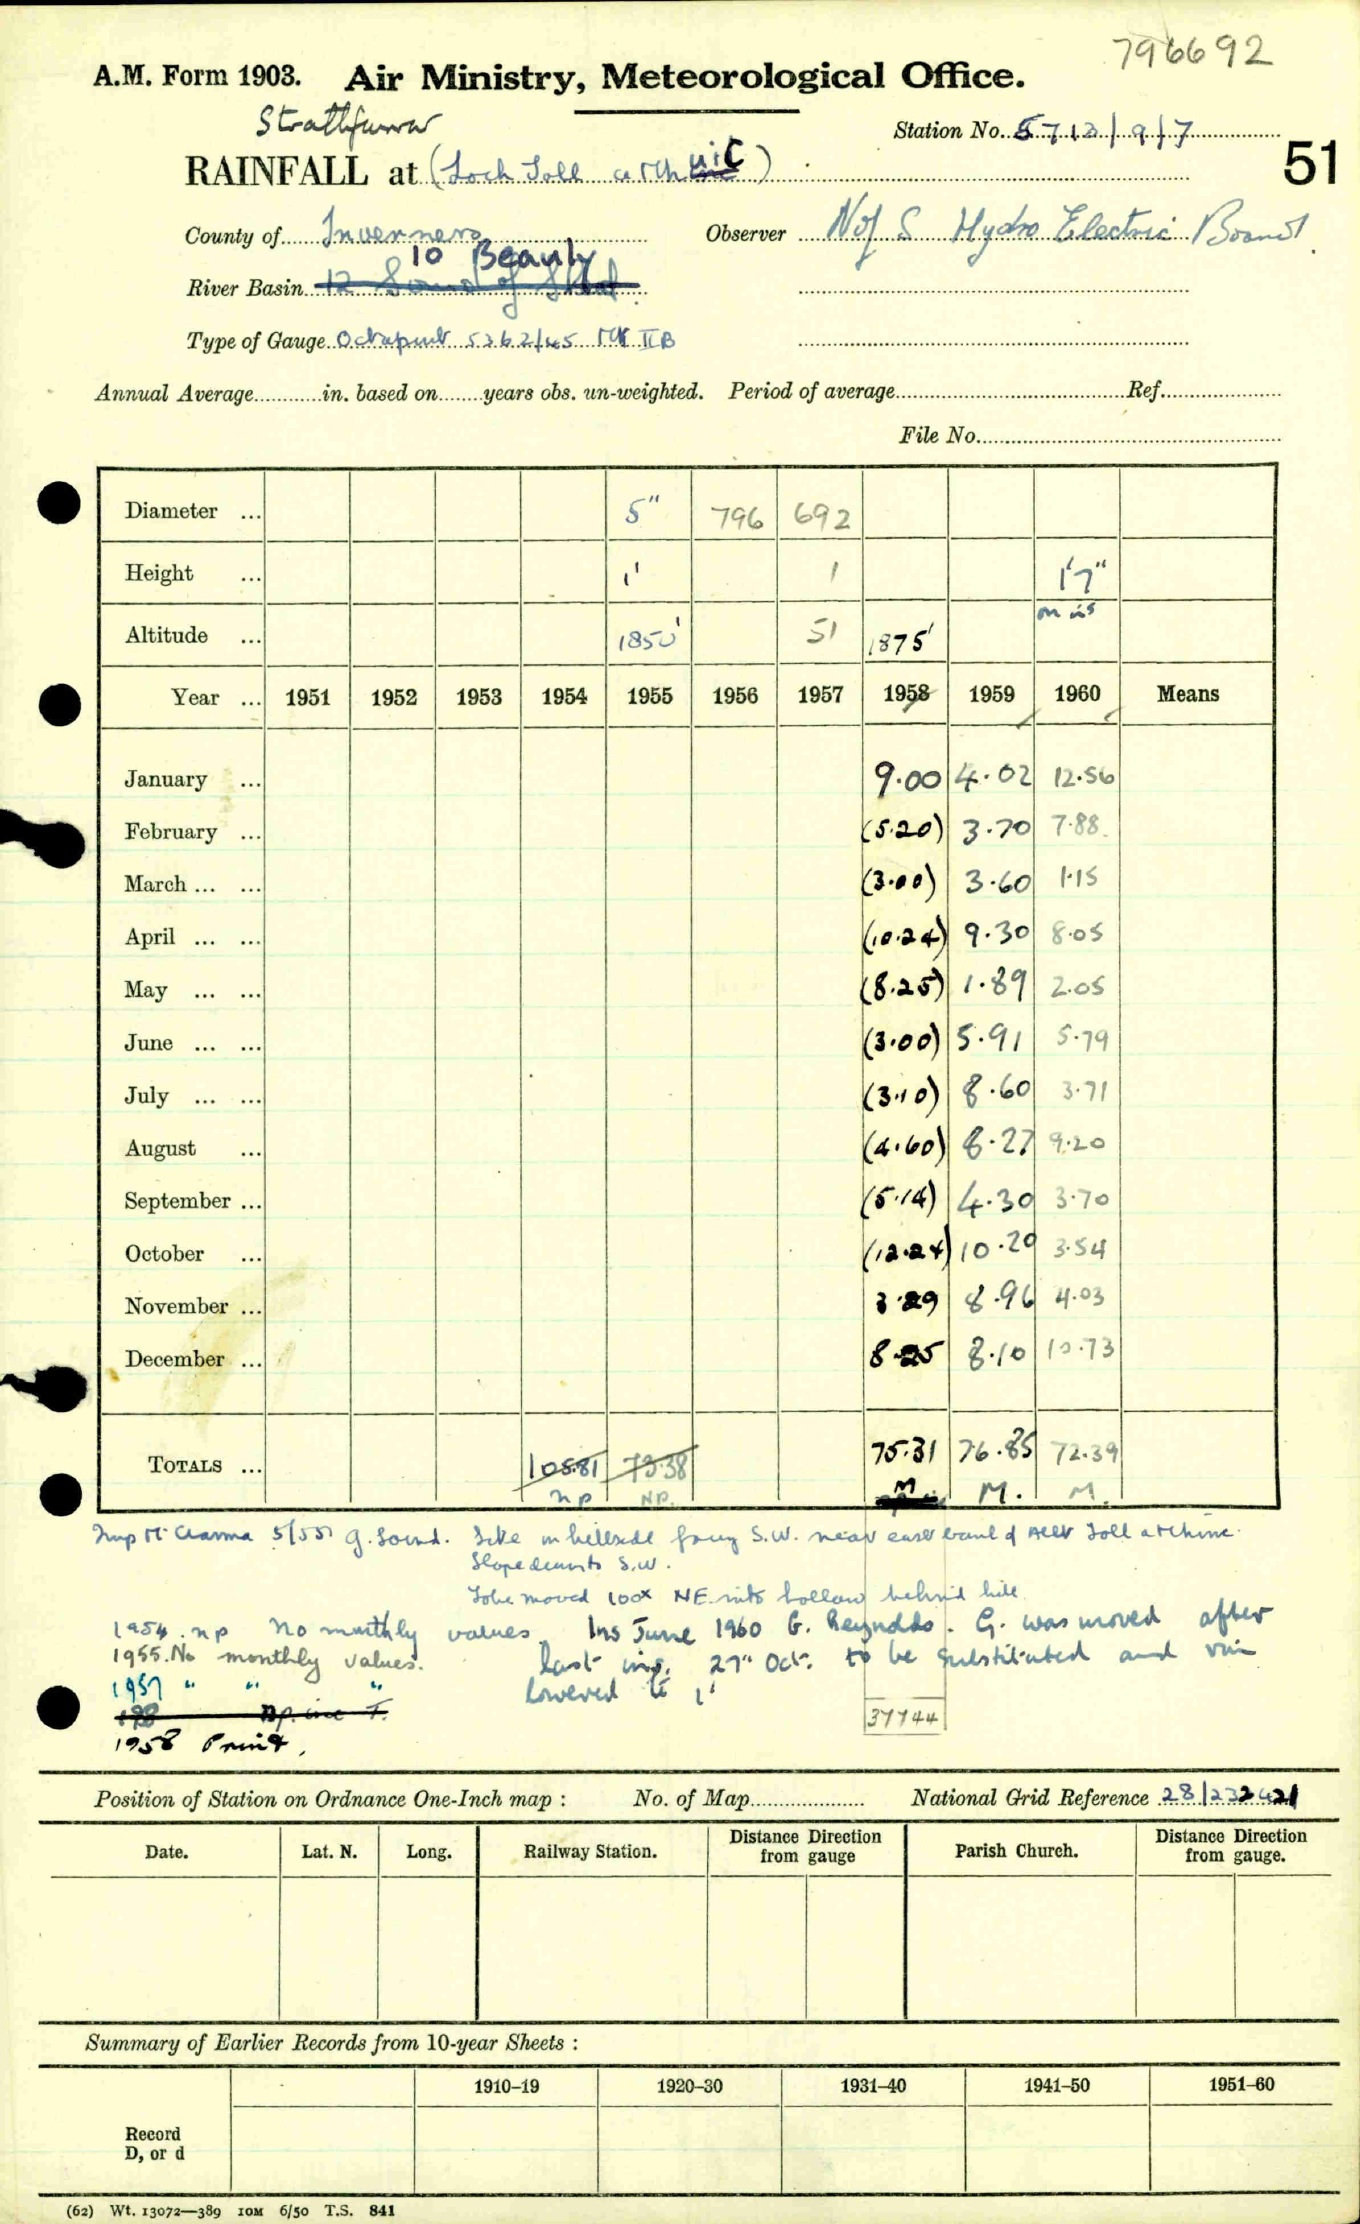 796692
A.M. Form 1903. Air Ministry, Meteorological Office.
Station No. 5713/9/7
51
RAINFALL at (Loch Toll
County of Inverness Observer N of S Hydro Electric Board
10 Beauly
River Basin 12 Sound of
Type of Gauge Octapent 5362/45 Mk IIB
Annual Average............in. based on........years obs. un-weighted. Period of average........Ref........
File No.
Diameter ... 5" 796 692
Height ... 1' 1 1'7"
Altitude ... 1850' 51 1875'
Year ... 1951 1952 1953 1954 1955 1956 1957 1958 1959 1960 Means
January ... 9.00 4.02 12.56
February ... (5.20) 3.70 7.88
March ... ... (3.00) 3.60 1.15
April ... ... (10.24) 9.30 8.05
May ... ... (8.25) 1.89 2.05
June ... ... (3.00) 5.91 5.79
July ... ... (3.10) 8.60 3.71
August ... (4.60) 8.27 9.20
September ... (5.14) 4.30 3.70
October ... (12.24) 10.20 3.54
November ... 3.29 8.96 4.03
December ... 8.25 8.10 10.73
TOTALS ... 105.81 73.38 75.31 76.85 72.39
np NP. M M. M.
5/55 G. Sound. Site on hillside facing S.W. near east bank of Allt Toll
Slope down to S.W.
To be moved 100x NE into hollow behind hill
1954 np No monthly values Ins June 1960 G. Reynolds. G. was moved after
1955. No monthly values. last ins. 27th Oct. to be substituted and rim
1957 " " " lowered to 1'
37744
1958 Print.
Position of Station on Ordnance One-Inch map : No. of Map........ National Grid Reference 28/232421
Date. Lat. N. Long. Railway Station. Distance Direction from gauge Parish Church. Distance Direction from gauge.
Summary of Earlier Records from 10-year Sheets :
1910–19 1920–30 1931–40 1941–50 1951–60
Record
D, or d
(62) Wt. 13072—389 10M 6/50 T.S. 841